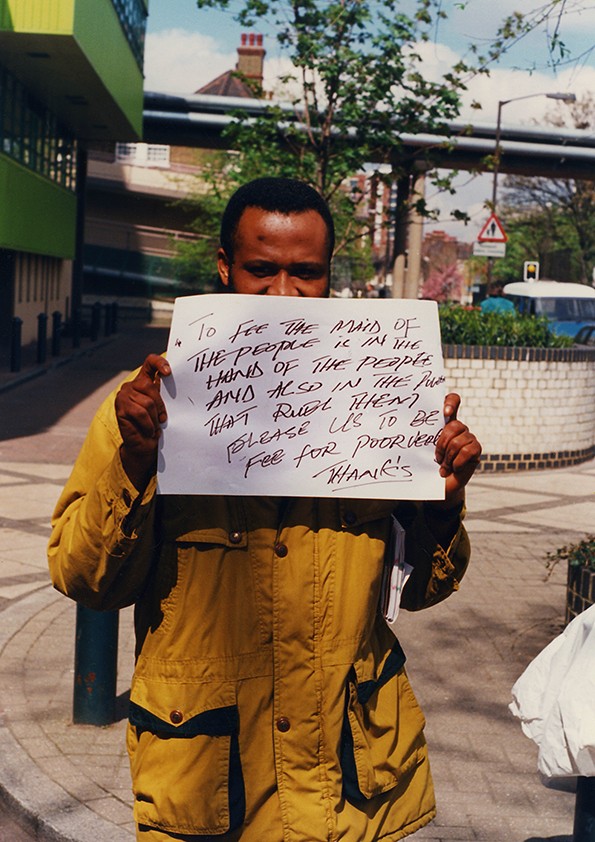 TO FEE THE MAID OF
THE PEOPLE IS IN THE
HAND OF THE PEOPLE
AND ALSO IN THE
THAT RUEL THEM
PLEASE US TO BE
FEE FOR POOR
THANK'S